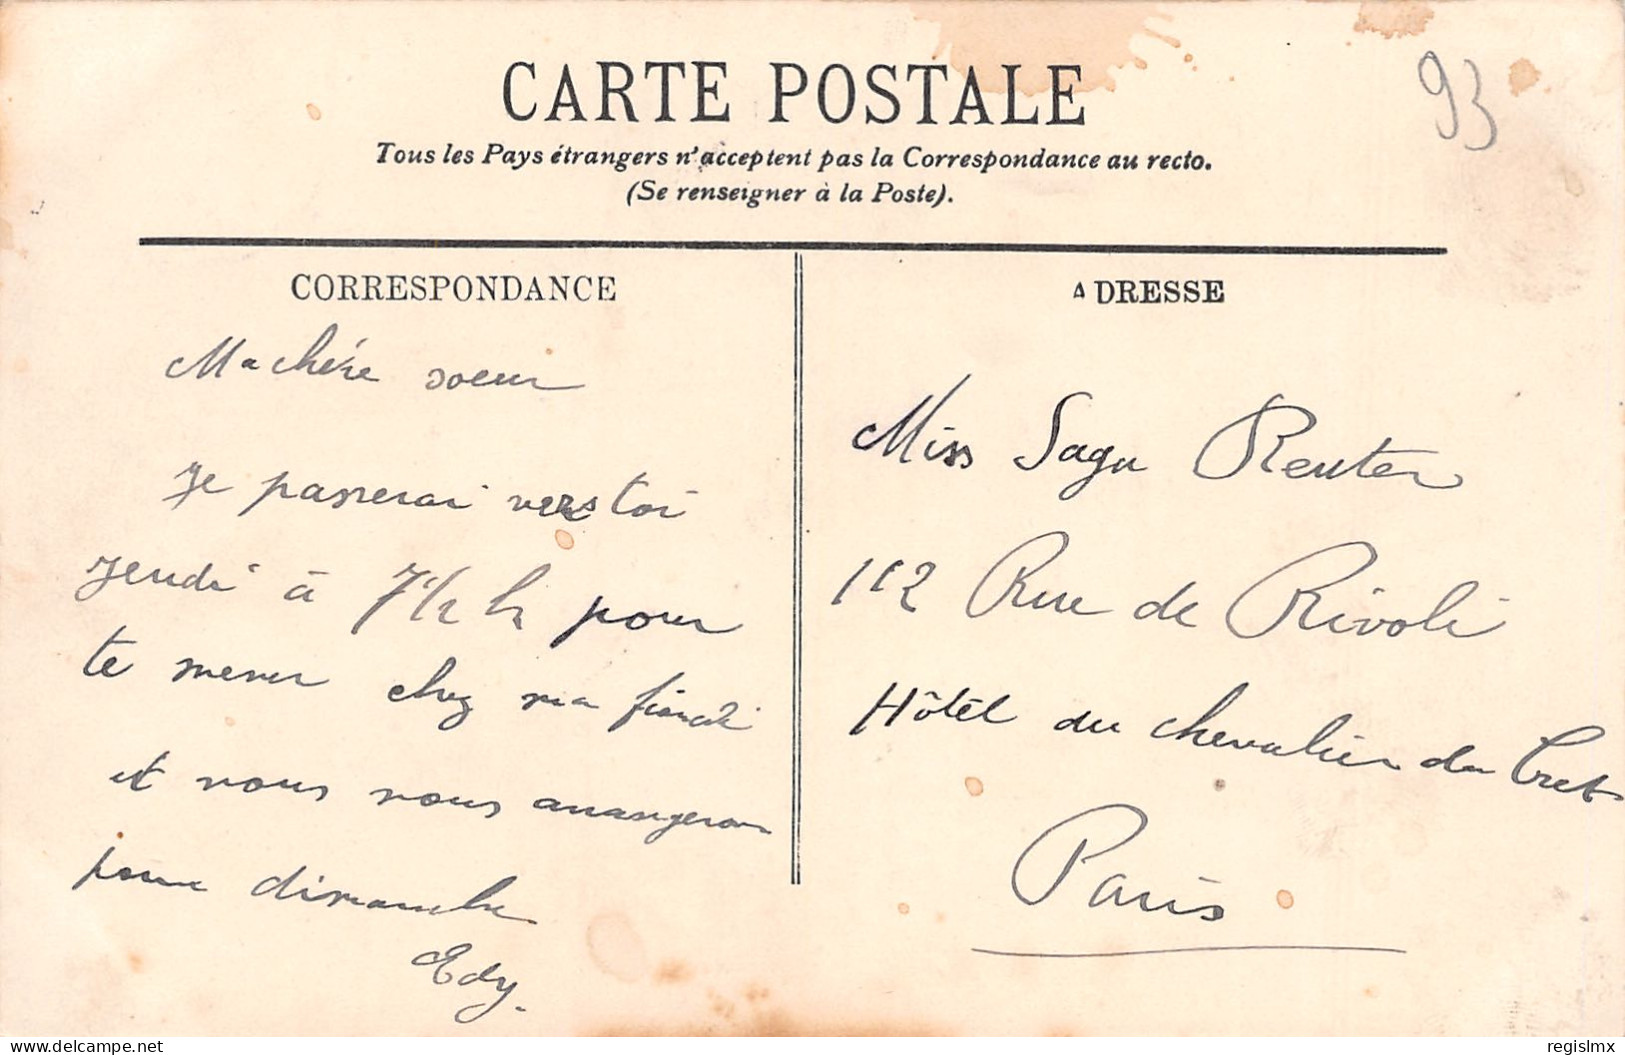 CARTE POSTALE
Tous les Pays étrangers n'acceptent pas la Correspondance au recto.
(Se renseigner à la Poste).
93
CORRESPONDANCE
Ma chère soeur
Je passerai vers toi
jeudi à 7 1/2 h pour
te mener chez ma fiancée
et nous nous arrangerons
pour dimanche
Edy.
ADRESSE
Miss Saga Reuter
112 Rue de Rivoli
Hôtel du chevalier du
Paris
delcampe.net
regislmx